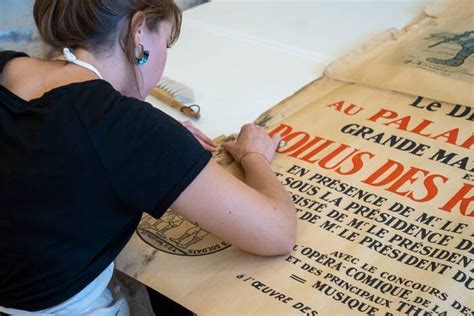 Le D
AU PALA
GRANDE MA
POILUS DES R
EN PRÉSENCE DE M. LE
SOUS LA PRÉSIDENCE
SISTÉ DE M. LE PRÉSIDENT
DE M. LE PRÉSIDENT DU
AVEC LE CONCOURS DU
L'OPÉRA-COMIQUE, de la
ET DES PRINCIPAUX THÉÂ
MUSIQUE
à l'Œuvre des
SOLDATS